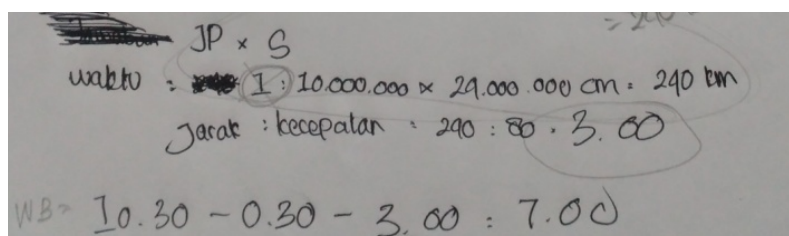 = 240
JP × S
waktu : 1 : 10.000.000 × 24.000.000 cm = 240 km
Jarak : kecepatan = 240 : 80 = 3.00
WB = 10.30 - 0.30 - 3.00 = 7.00